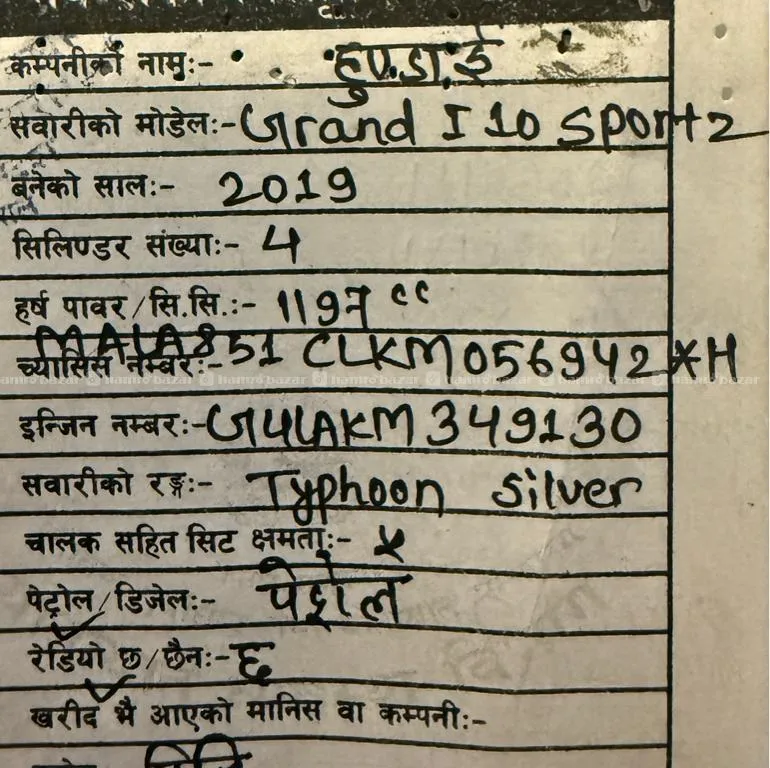 कम्पनीको नामः- हुण्डाई
सवारीको मोडेलः- Grand I 10 Sportz
बनेको सालः- 2019
सिलिण्डर संख्याः- 4
हर्ष पावर/सि.सि.ः- 1197 cc
च्यासिस नम्बरः- MALA851CLKM056942*H
hamrobazar hamrobazar hamrobazar hamrobazar hamrobazar hamrobazar hamrobazar
इन्जिन नम्बरः- G4LAKM349130
सवारीको रङ्गः- Typhoon Silver
चालक सहित सिट क्षमताः- ५
पेट्रोल/डिजेलः- पेट्रोल
रेडियो छ/छैनः- छ
खरीद भै आएको मानिस वा कम्पनीः-